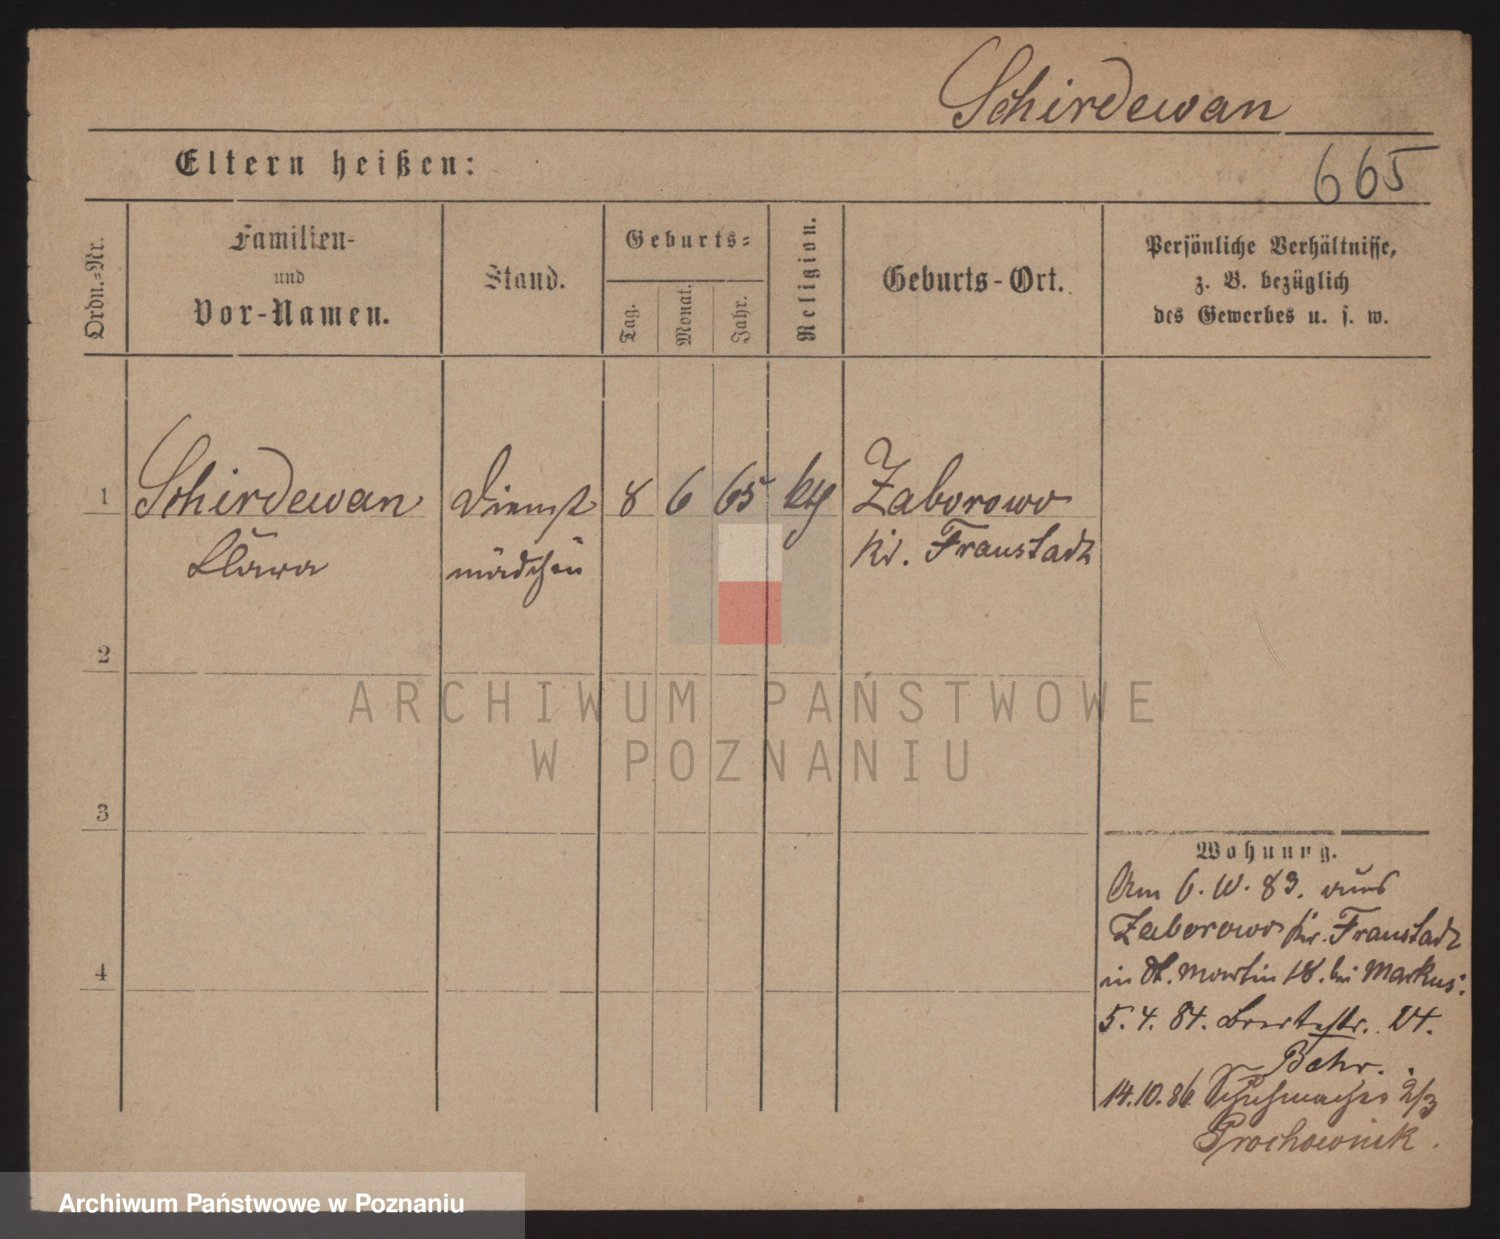 Schirdewan
Eltern heißen:
665
Ordn.-Nr.
Familien-
und
Vor-Namen.
Stand.
Geburts-
Tag.
Monat.
Jahr.
Religion.
Geburts-Ort.
Persönliche Verhältnisse,
z. B. bezüglich
des Gewerbes u. s. w.
1
Schirdewan
Klara
Dienst
mädchen
8
6
65
kth
Zaborowo
Kr. Fraustadt
2
3
4
Wohnung.
Am 6. 10. 83. aus
Zaborowo Kr. Fraustadt
in St. Martin 18. bei Markus.
5. 4. 84. Breitestr. 24.
Behr.
14.10.86 Schuhmacher 2/3
Prochownik.
ARCHIWUM PAŃSTWOWE
W POZNANIU
Archiwum Państwowe w Poznaniu